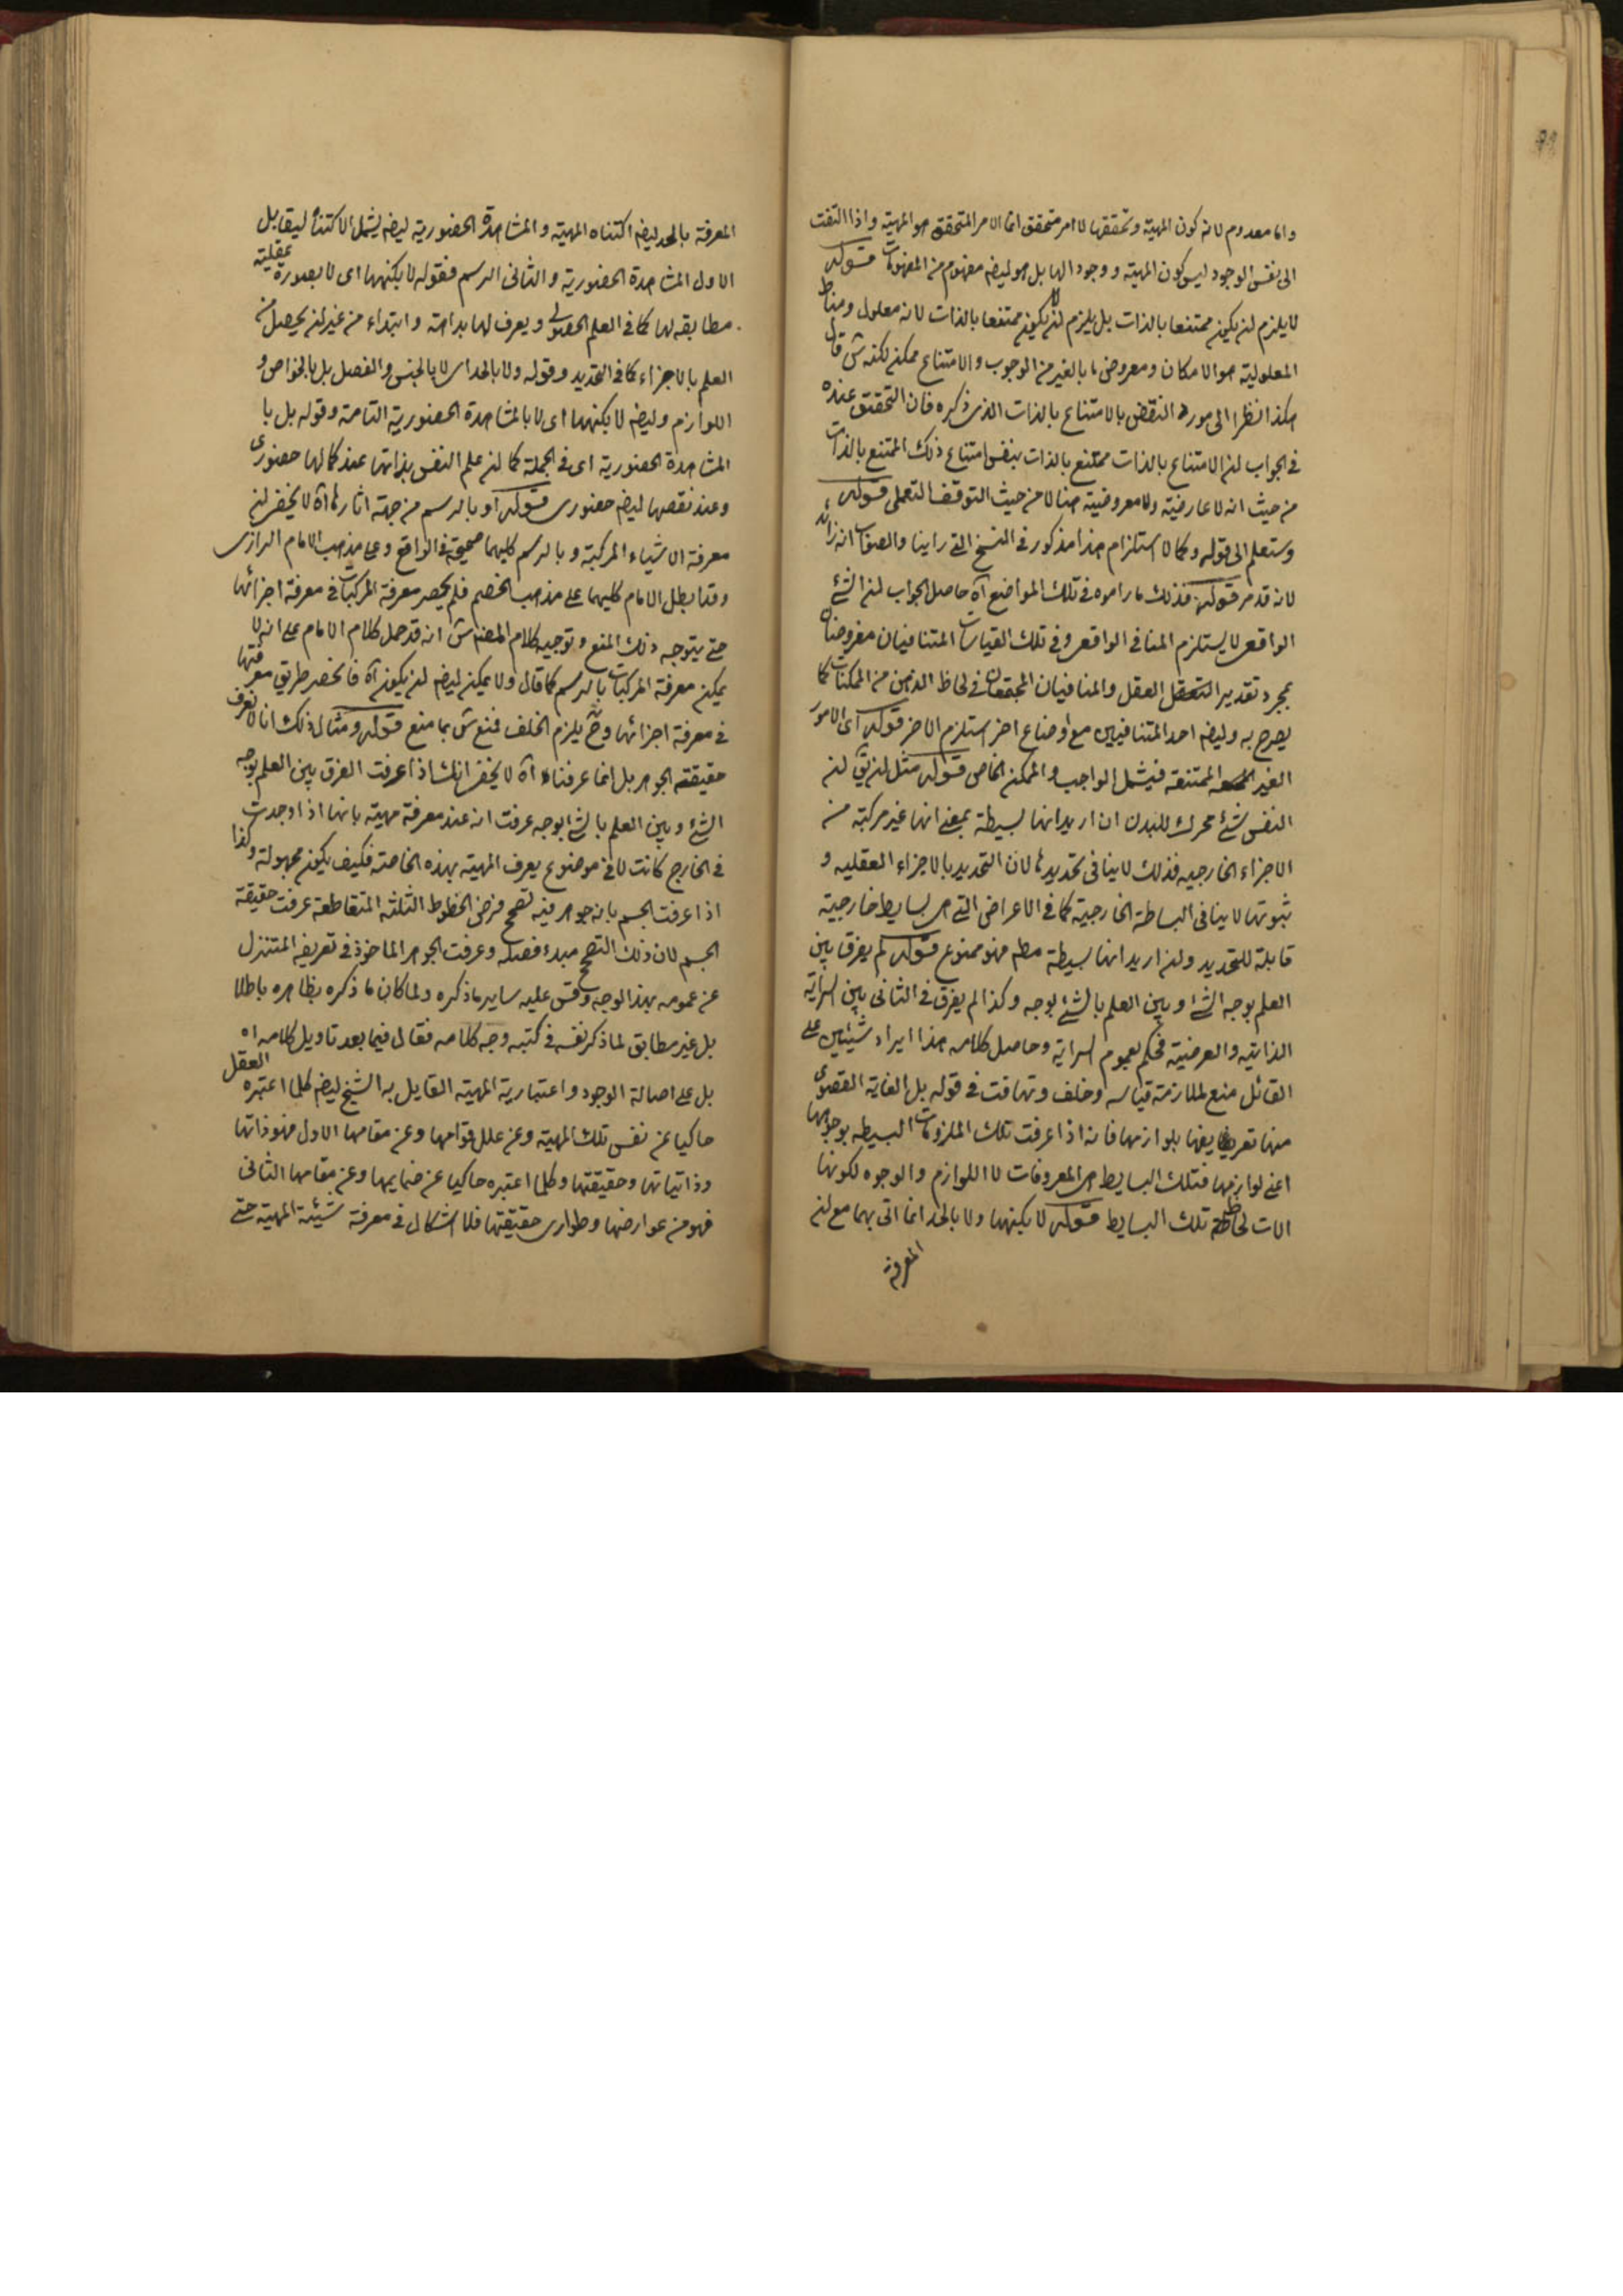 واما معدوم لانه كون المهية وتحققها لا امر متحقق انما الامر المتحقق هو المهية واذا التفت
الى نفس الوجود ليس كون المهية ووجودا لها بل هو ليضه مفهوم من المفهومات قوله
لا يلزم لنه يكون ممتنعا بالذات بل يلزم لنه لا يكون ممتنعا بالذات لانه معلول ومناط
المعلولية هو الامكان ومعروض ما بالغير من الوجوب والامتناع ممكن لكنه ش قال
هكذا نظرا الى مورد النقض بالامتناع بالذات الذى ذكره فان التحقيق عنده
فى الجواب لنه الامتناع بالذات ممتنع بالذات بنفس امتناع ذلك الممتنع بالذات
من حيث انه لا عارضية ولا معروضية هنا لا من حيث التوقف التعملى قوله
وستعلم الى قوله وكمالا استلزام هذا مذكور فى النسخ التى راينا والصواب انه زائد
لانه قد مر قوله فذلك ما راموه فى تلك المواضع آه حاصل الجواب لنه الشئ
الواقعى لا يستلزم المنافى الواقعى وفى تلك القياسات المتنافيان مفروضان
بمجرد تقدير العقل والمنافيان المجتمعان فى لحاظ الذهن من الممكنات كما
يصرح به وليضه احد المتنافيين مع اوضاع اخر استلزم الاخر قوله اى الامور
الغير الممتنعة فيشمل الواجب والممكن الخاص قوله مثل لنه يق لنه
النفس شئ محرك للبدن ان اريد انها بسيطة بمعنى انها غير مركبة من
الاجزاء الخارجيه فذلك لا ينافى تحديدها لان التحديد بالاجزاء العقليه و
ثبوتها لا ينافى البساطة الخارجية كما فى الاعراض التى هى بسايط خارجية
قابلة للتحديد ولنه اريد انها بسيطة مطم فهو ممنوع قوله لم يفرق بين
العلم بوجه الشئ وبين العلم بالشئ بوجه وكذا لم يفرق فى الثانى بين السراية
الذاتية والعرضية فحكم بعموم السراية وحاصل كلامه هذا ايراد شيئين على
القائل منع لملازمة قياسه وخلف وتهافت فى قوله بل الغاية القصوى
منها تعريفها بلوازمها فانه اذا عرفت تلك الملزومات البسيطه بوجوهها
اعنى لوازمها فتلك البسايط هى المعروفات لا اللوازم والوجوه لكونها
الات لحاظ تلك البسايط قوله لا بكنهها ولا بالحد انما اتى بهما مع لنه
المعرفة
المعرفة بالحد ليضه اكتناه المهية والمشاهدة الحضورية ليضه يشمل الاكتناه ليقابل
الاول المشاهدة الحضورية والثانى الرسم فقوله لا بكنهها اى لا بصورة عقلية
مطابقه لها كما فى العلم الحصولى ويعرف لها بداهة وابتداء من غير لنه يحصل من
العلم بالاجزاء كما فى التحديد وقوله ولا بالحد اى لا بالجنس والفصل بل بالخواص و
اللوازم وليضه لا بكنهها اى لا بالمشاهدة الحضورية التامة وقوله بل با
المشاهدة الحضورية اى فى الجملة كما لنه علم النفس بذاتها عند كمالها حضورى
وعند نقصها ليضه حضورى قوله او بالرسم من جهة اثارها آه لا يخفى لنه
معرفة الاشياء المركبة وبالرسم كليهما صحيحة فى الواقع وعلى مذهب الامام الرازى
وقد ابطل الامام كليهما على مذهب الخصم فلم يحصر معرفة المركبات فى معرفة اجزائها
حتى يتوجه ذلك المنع وتوجيه كلام المصنف ش انه قد حمل كلام الامام على انه لا
يمكن معرفة المركبات بالرسم كما قال ولا يمكن ليضه لنه يكون آه فانحصر طريق معرفتها
فى معرفة اجزائها وح يلزم الخلف فمنع ش بما منع قوله ومثال ذلك انا لا نعرف
حقيقة الجوهر بل انما عرفناه آه لا يخفى انك اذا عرفت الفرق بين العلم بوجه
الشئ وبين العلم بالشئ بوجه عرفت انه عند معرفة مهية بانها اذا وجدت
فى الخارج كانت لا فى موضوع يعرف المهية بهذه الخاصة فكيف يكون مجهولة وكذا
اذا عرفت الجسم بانه جوهر فيه تصحح فرض الخطوط الثلثة المتقاطعة عرفت حقيقة
الجسم لان ذلك التصحح مبدء فصله وعرفت الجوهر الماخوذ فى تعريفه المتنزل
عن عمومه بهذا الوجه وقس عليه ساير ما ذكره ولما كان ما ذكره بظاهره باطلا
بل غير مطابق لما ذكر نفسه فى كتبه وجه كلامه فقال فيما بعد تاويل كلامه آه
بل على اصالة الوجود واعتبارية المهية القايل به الشيخ ليضه كلما اعتبره العقل
حاكيا عن نفس تلك المهية وعن علل قوامها وعن مقامها الاول فهو ذاتها
وذاتياتها وحقيقتها وكلما اعتبره حاكيا عن ضمايمها وعن مقامها الثانى
فهو من عوارضها وطوارى حقيقتها فلا اشكال فى معرفة شيئية المهية حتى